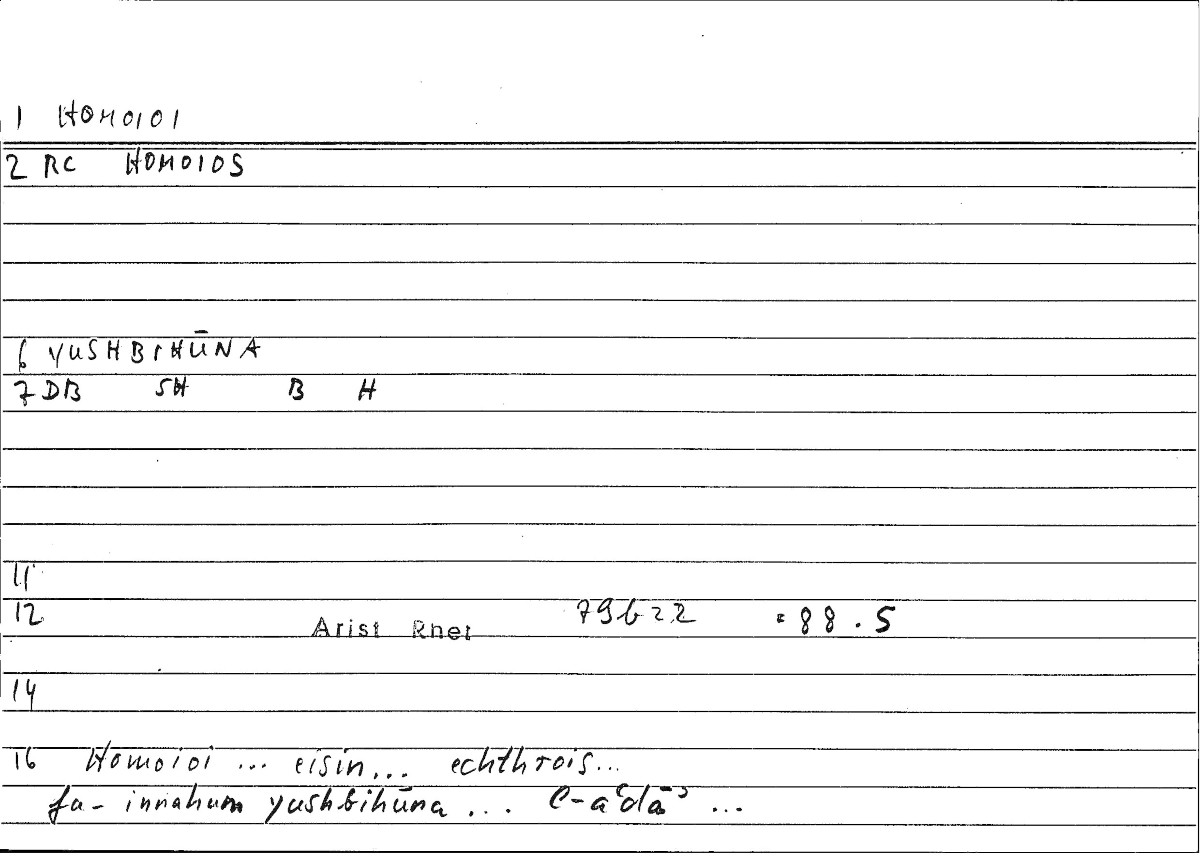 1 HOMOIOI
2 RC HOMOIOS
6 YUSHBIHŪNA
7 DB SH B H
11
12 Arist Rhet 79b22 = 88.5
14
16 Homoioi ... eisin... echthrois...
fa-innahum yushbihūna ... l-aʿdāʾ ...